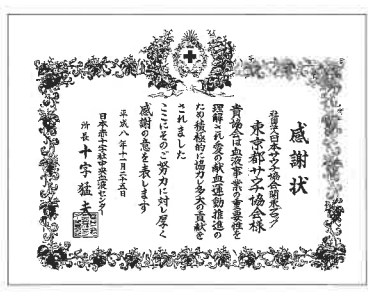 感謝状
社団法人日本サウナ協会関東ブロック
東京都サウナ協会様
貴協会は血液事業の重要性を
理解され愛の献血運動推進の
ため積極的に協力し多大の貢献を
されました
ここにそのご努力に対し厚く
感謝の意を表します
平成八年十一月二十五日
日本赤十字社中央血液センター
所長 十字猛夫